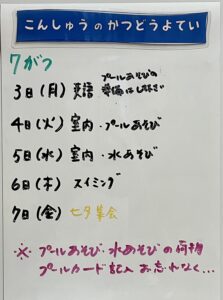 こんしゅうのかつどうよてい
7がつ
3日(月) 英語 プールあそびの
準備はしません
4日(火) 室内・プールあそび
5日(水) 室内・水あそび
6日(木) スイミング
7日(金) 七夕集会
※プールあそび・水あそびの荷物
プールカード記入お忘れなく…